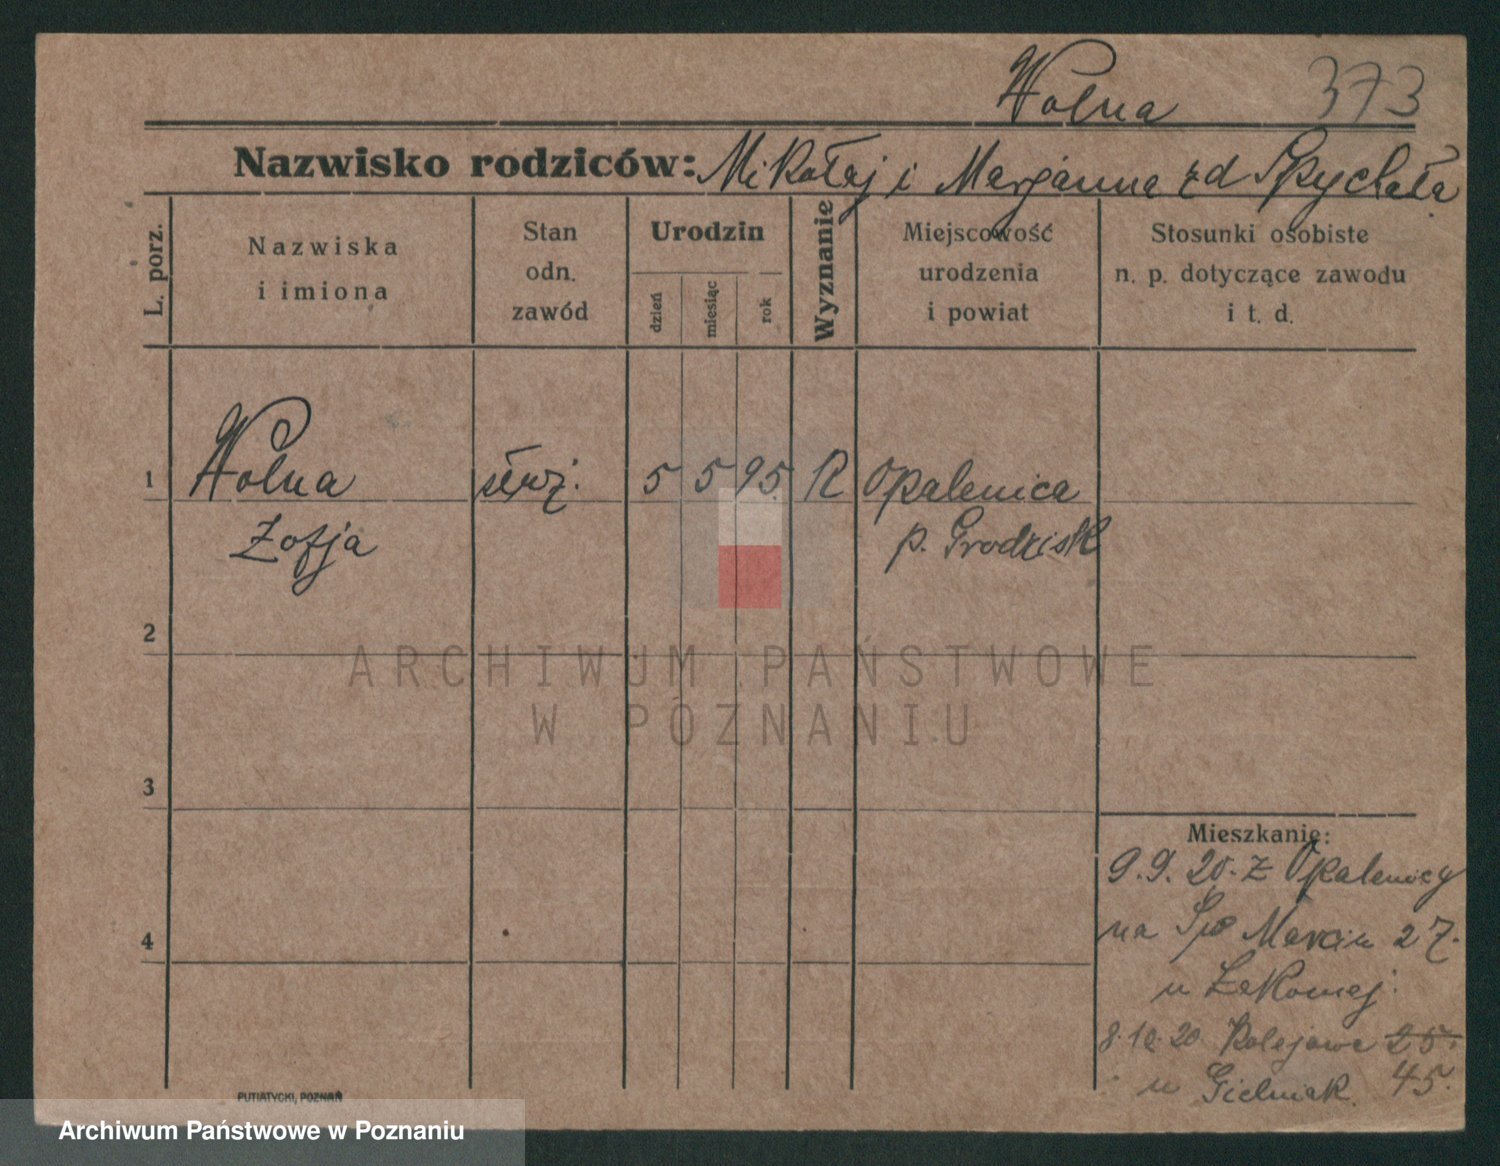 Wolna 373
Nazwisko rodziców: Mikołaj i Marjanna zd Spychała
L. porz.
Nazwiska
i imiona
Stan
odn.
zawód
Urodzin
dzień
miesiąc
rok
Wyznanie
Miejscowość
urodzenia
i powiat
Stosunki osobiste
n. p. dotyczące zawodu
i t. d.
1 Wolna służ. 5 5 95. R Opalenica
Zofja p. Grodzisk
2
3
4
Mieszkanie:
9.9.20. z Opalenicy
na Św Marcin 27.
u
8.10.20 Kolejowa 25.
u Gielniak. 45.
ARCHIWUM PAŃSTWOWE
W POZNANIU
PUTIATYCKI, POZNAŃ
Archiwum Państwowe w Poznaniu